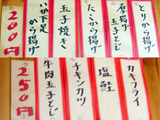 とりから揚げ
厚揚げ
玉子とじ
たこから揚げ
玉子焼き
いか下足
から揚げ
200円
カキフライ
塩鮭
チキンカツ
牛肉玉子とじ
250円